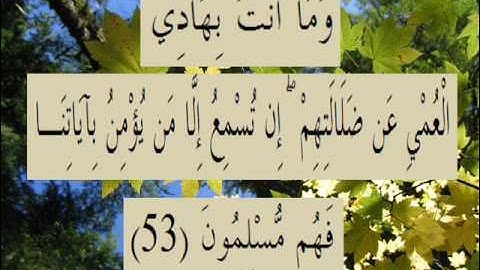 وَمَا أَنتَ بِهَادِي
الْعُمْيِ عَن ضَلَالَتِهِمْ ۖ إِن تُسْمِعُ إِلَّا مَن يُؤْمِنُ بِآيَاتِنَــا
فَهُم مُّسْلِمُونَ (53)